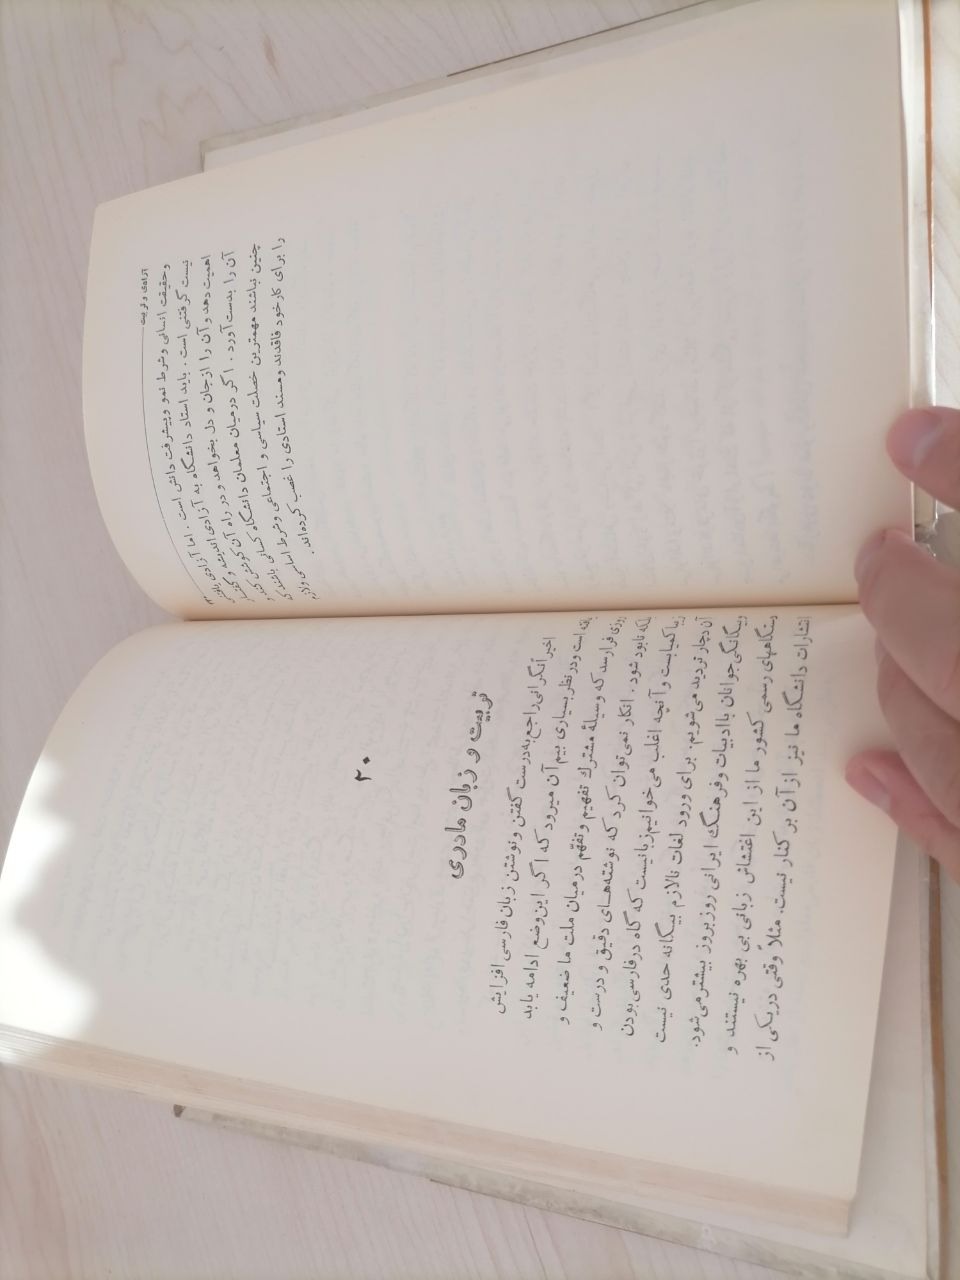 آزادی و تربیت
وحقیقت انسانی وشرط نمو وپیشرفت دانش است . اما آزادی
نیست گرفتنی است . باید استاد دانشگاه به آزادی اندیشه و گفتار
اهمیت دهد و آن را از جان و دل بخواهد و در راه آن کوشش کند و
آن را بدست آورد . اگر درمیان معلمان دانشگاه کسانی باشند که
چنین نباشند مهمترین خصلت سیاسی و اجتماعی وشرط اساسی ولازم
را برای کار خود فاقدند ومسند استادی را غصب کرده‌اند .
۲۰
تربیت و زبان مادری
اخیراً نگرانی راجع به درست گفتن و نوشتن زبان فارسی افزایش
یافته است ودر نظر بسیاری بیم آن میرود که اگر این وضع ادامه یابد
روزی فرارسد که وسیلهٔ مشترك تفهیم و تفهّم درمیان ملت ما ضعیف و
بلکه نابود شود . انکار نمی‌توان کرد که نوشته‌های دقیق و درست و
زیبا کمیابست و آنچه اغلب می‌خوانیم زبانیست که گاه در فارسی بودن
آن دچار تردید می‌شویم. برای ورود لغات نالازم بیگانه حدی نیست
وبیگانگی جوانان با ادبیات وفرهنگ ایرانی روز بروز بیشتر می‌شود.
دستگاههای رسمی کشور ما از این اغتشاش زبانی بی بهره نیستند و
انتشارات دانشگاه ما نیز از آن بر کنار نیست. مثلاً وقتی در یکی از